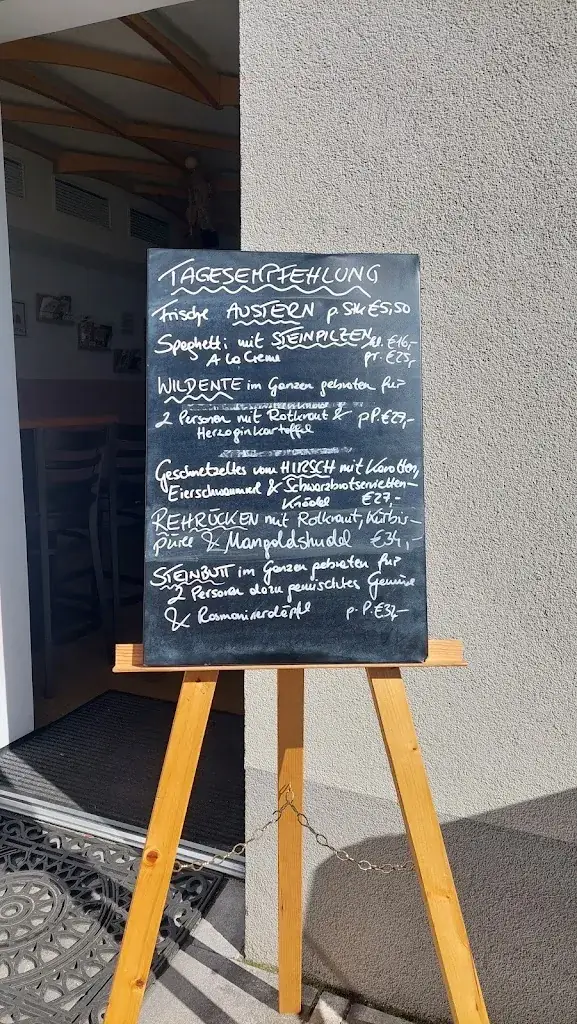 TAGESEMPFEHLUNG
Frische AUSTERN p. Stk €5,50
Spaghetti mit STEINPILZEN kl. €16,-
A la Creme gr. €25,-
WILDENTE im Ganzen gebraten für
2 Personen mit Rotkraut & p.P. €29,-
Herzoginkartoffel
Geschnetzeltes vom HIRSCH mit Karotten,
Eierschwammerl & Schwarzbrotservietten-
Knödel €27,-
REHRÜCKEN mit Rotkraut, Kürbis-
püree & Mangoldstrudel €34,-
STEINBUTT im Ganzen gebraten für
2 Personen dazu gemischtes Gemüse
& Rosmarinerdäpfel p.P. €37,-